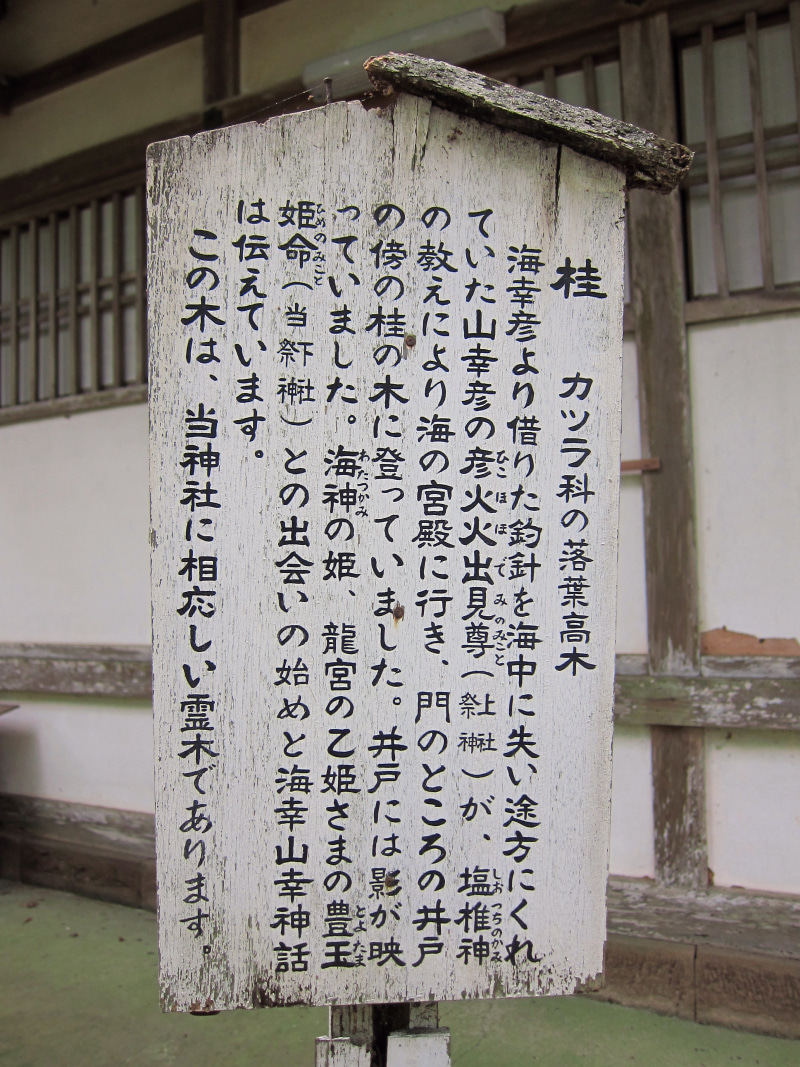 桂　カツラ科の落葉高木
海幸彦より借りた釣針を海中に失い途方にくれ
ていた山幸彦の彦火火出見尊（上社祭神）が、塩椎神
の教えにより海の宮殿に行き、門のところの井戸
の傍の桂の木に登っていました。井戸には影が映
っていました。海神の姫、龍宮の乙姫さまの豊玉
姫命（当下社祭神）との出会いの始めと海幸山幸神話
は伝えています。
この木は、当神社に相応しい霊木であります。